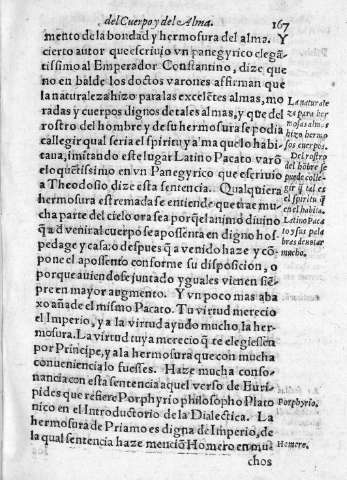 del Cuerpo y del Alma. 167
mento de la bondad y hermosura del alma. Y
cierto autor que escriuio vn panegyrico elegã-
tissimo al Emperador Constantino, dize que
no en balde los doctos varones affirman que
la naturaleza hizo para las excelẽtes almas, mo
radas y cuerpos dignos de tales almas, y que del
rostro del hombre y de su hermosura se podia
collegir qual seria el spiritu y alma que lo habi
taua, imitando este lugar Latino Pacato varõ
eloquẽtissimo en vn Panegyrico que escriuio
a Theodosio dize esta sentencia. Qualquiera
hermosura estremada se entiende que trae mu
cha parte del cielo ora sea porq̃ el animo diuino
q̃ a d venir al cuerpo se apossenta en digno hos-
pedage y casa: o despues q̃ a venido haze y cõ-
pone el apossento conforme su disposicion, o
porque auiendose juntado yguales vienen siẽ-
pre en mayor augmento. Y vn poco mas aba
xo añade el mismo Pacato. Tu virtud merecio
el Imperio, y a la virtud ayudo mucho la her-
mosura. La virtud tuya merecio q̃ te elegiessẽ
por Principe, y a la hermosura que con mucha
conueniencia lo fuesses. Haze mucha conso-
nancia con esta sentencia aquel verso de Euri-
pides que refiere Porphyrio philosopho Plato
nico en el Introductorio de la Dialectica. La
hermosura de Priamo es digna de Imperio, de
la qual sentencia haze menciõ Homero en mu-
chos
La natura le
za para her
mosas alm as
hizo hermo
sos cuerpos.
Del rostro
del hõbre se
puede colle-
gir q̃ tal es
el spiritu q̃
en el habita.
Latino Paca
to y sus pala
bras de notar
mucho.
Porphyrio.
Homero.